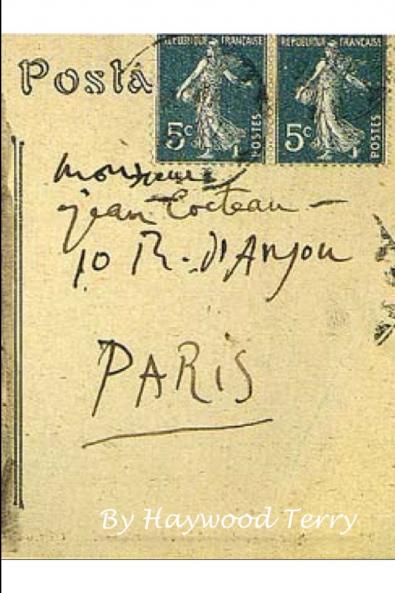 Posta
REPUBLIQUE FRANÇAISE REPUBLIQUE FRANÇAISE
5c POSTES 5c POSTES
Monsieur
Jean Cocteau —
10 R. d'Anjou
PARIS
By Haywood Terry